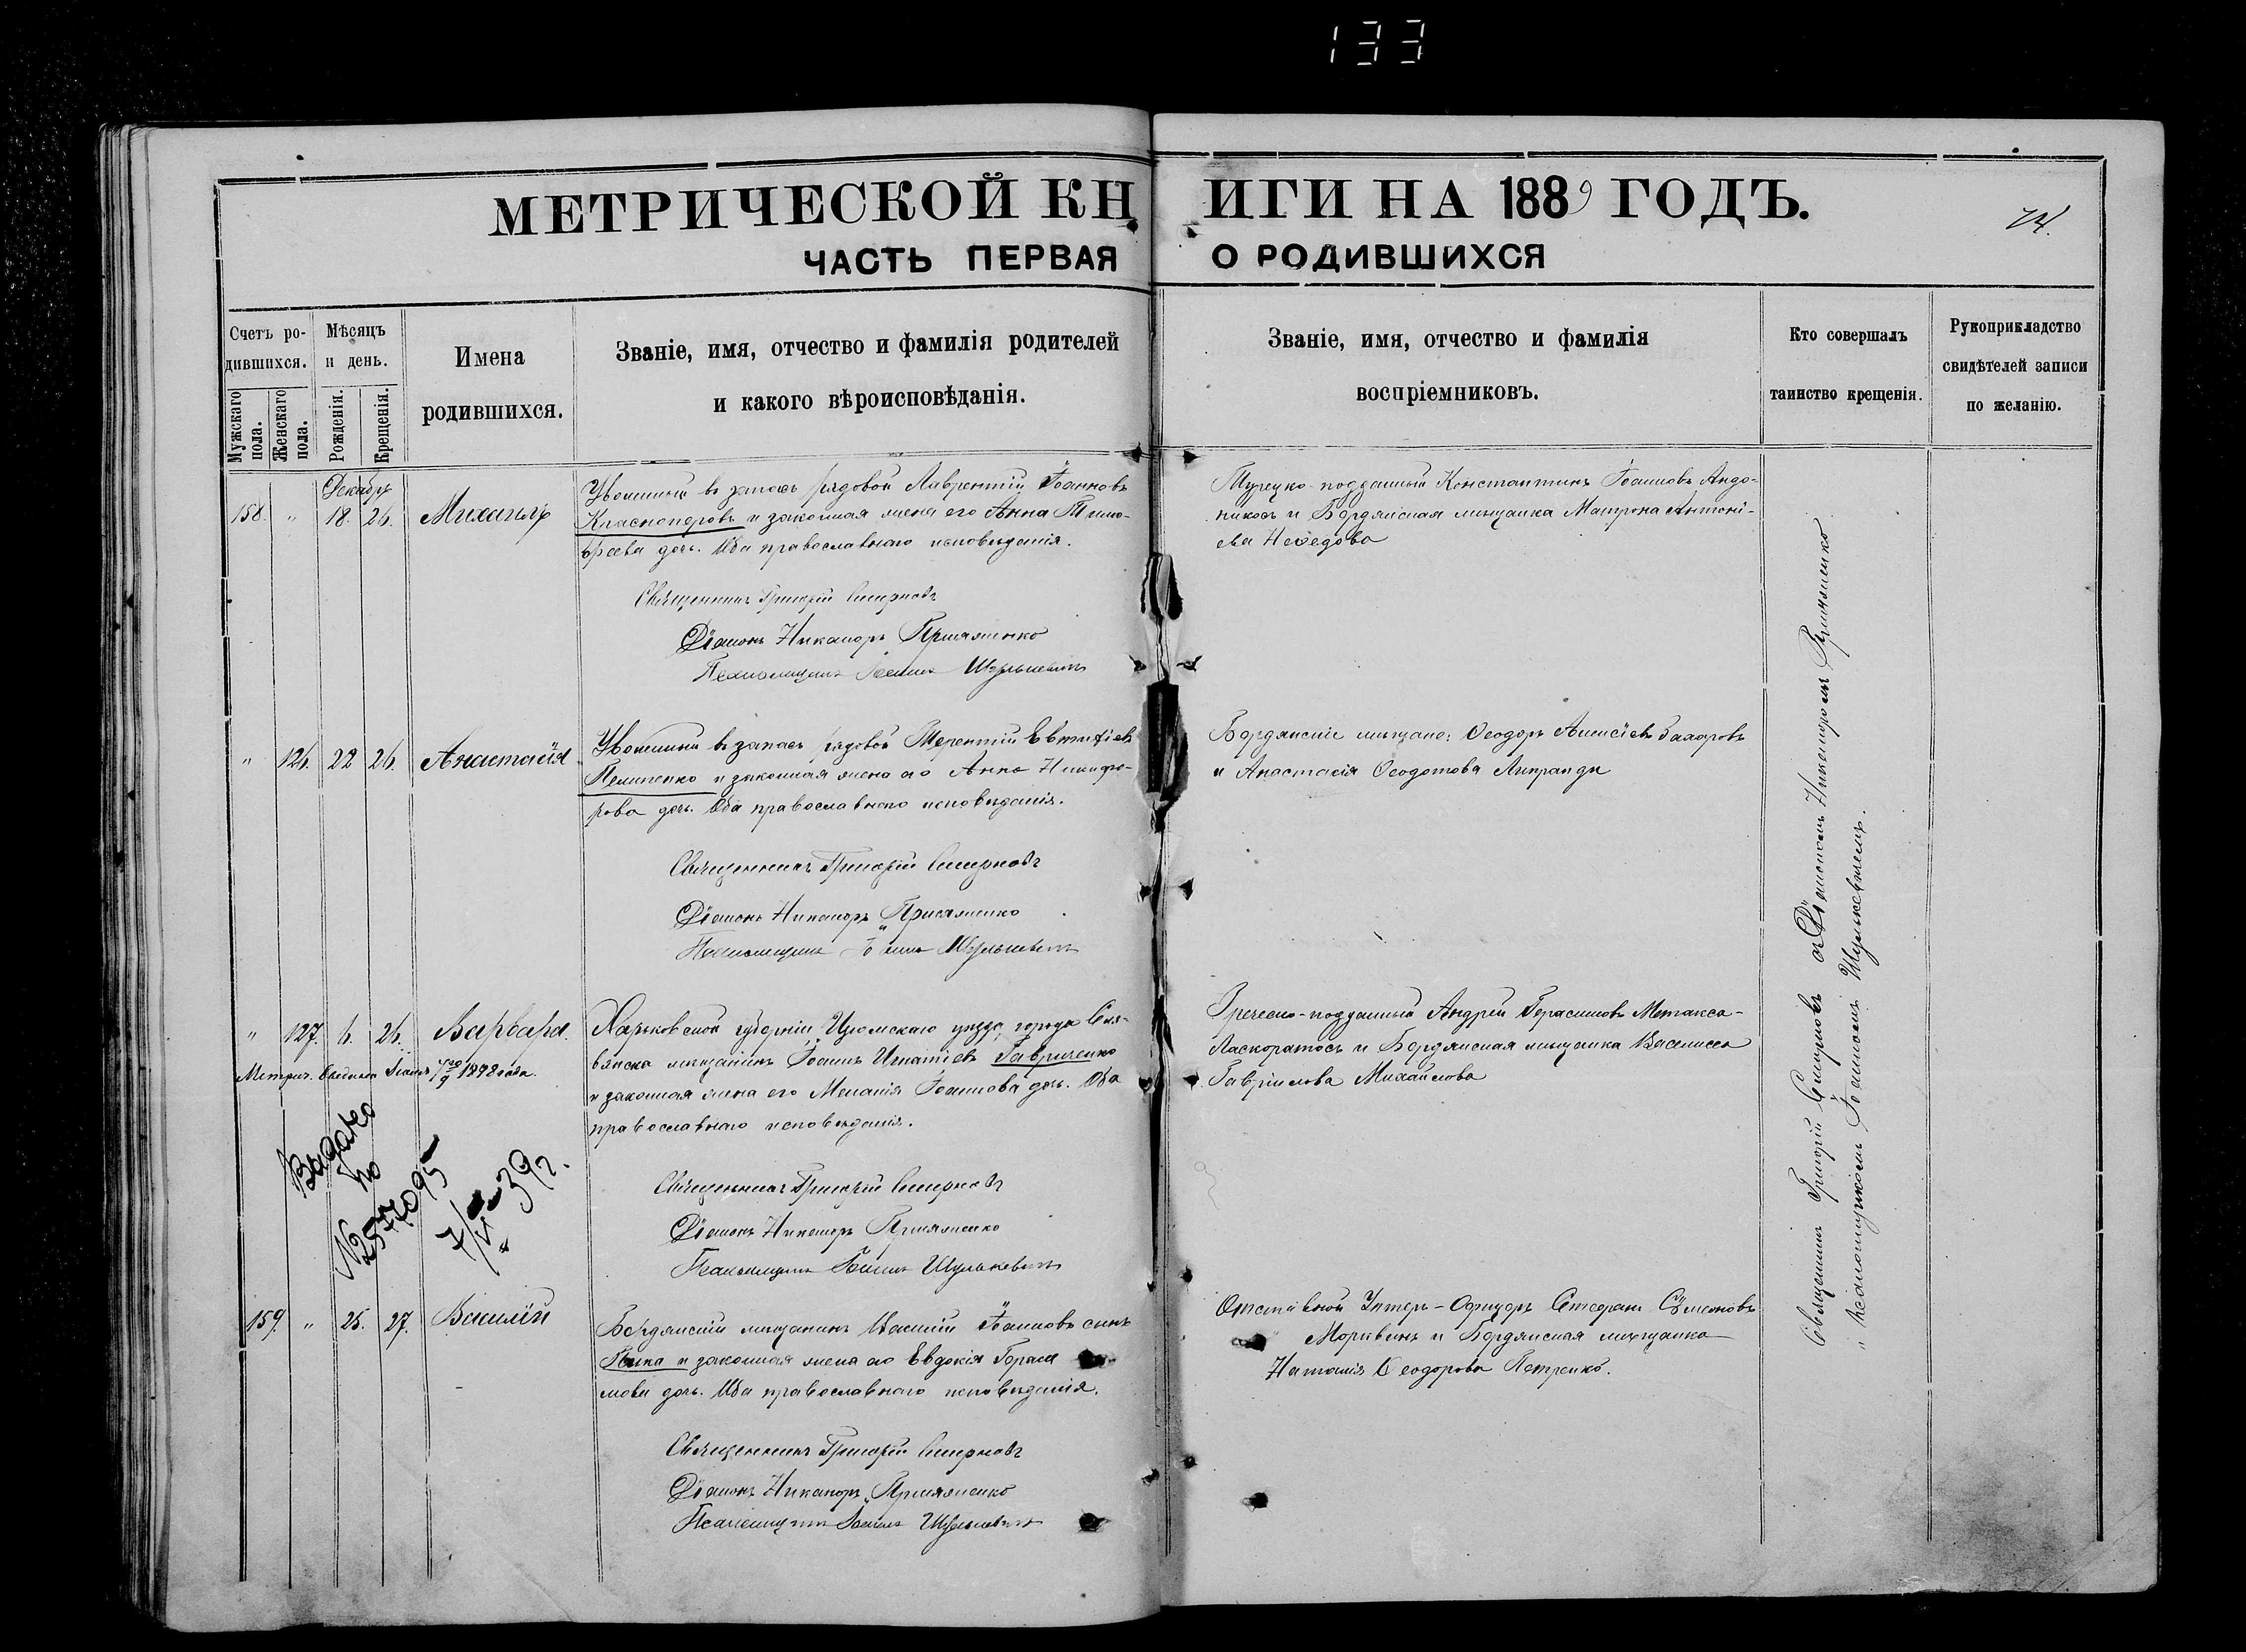 133
МЕТРИЧЕСКОЙ КНИГИ НА 1889 ГОДЪ.
74.
ЧАСТЬ ПЕРВАЯ О РОДИВШИХСЯ
Счетъ родившихся.
Мужскаго пола.
Женскаго пола.
Мѣсяцъ и день.
Рожденія.
Крещенія.
Имена
родившихся.
Званіе, имя, отчество и фамилія родителей
и какого вѣроисповѣданія.
Званіе, имя, отчество и фамилія
воспріемниковъ.
Кто совершалъ
таинство крещенія.
Рукоприкладство
свидѣтелей записи
по желанію.
Декабрь
158. " 18. 26. Михаилъ
Уволенный въ запасъ рядовой Лаврентій Іоанновъ
Красноперовъ и законная жена его Анна Тимо-
фѣева дочь. Оба православнаго исповѣданія.
Турецко-подданный Константинъ Іоанновъ Андо-
никосъ и Бердянская мѣщанка Матрона Антоні-
ева
Священникъ Григорій Смирновъ
Діаконъ Никаноръ Присяженко
Псаломщикъ Іоаннъ Шулькевичъ
" 126. 22 26. Анастасія
Уволенный въ запасъ рядовой Терентій Евтихіевъ
и законная жена его Анна Никифо-
рова дочь. Оба православнаго исповѣданія.
Бердянскіе мѣщане: Ѳеодоръ Захаровъ
и Анастасія Ѳеодотова Липранди
Священникъ Григорій Смирновъ
Діаконъ Никаноръ Присяженко
Псаломщикъ Іоаннъ Шулькевичъ
" 127. 6. 26. Варвара.
Харьковской губерніи Изюмскаго уѣзда, города Сла-
вянска мѣщанинъ Іоаннъ Игнатіевъ Гавриченко
и законная жена его Меланія Іоаннова дочь. Оба
православнаго исповѣданія.
Греческо-подданный Андрей Герасимовъ Метакса-
Ласкоратосъ и Бердянская мѣщанка Василисса
Гавріилова Михайлова
1898 года.
Выдано
по
N 2577095
7/VI 39 г.
Священникъ Григорій Смирновъ
Діаконъ Никаноръ Присяженко
Псаломщикъ Іоаннъ Шулькевичъ
159. " 25. 27. Василій
Бердянскій мѣщанинъ Василій Іоанновъ сынъ
и законная жена его Евдокія Гераси
мова дочь. Оба православнаго исповѣданія.
Отставной Унтеръ-Офицеръ Стефанъ Сѵмеоновъ
и Бердянская мѣщанка
Наталія Ѳеодорова Петренко.
Священникъ Григорій Смирновъ
Діаконъ Никаноръ Присяженко
Псаломщикъ Іоаннъ Шулькевичъ
Священникъ Григорій Смирновъ съ Діакономъ Никаноромъ Присяженко
и псаломщикомъ Іоанномъ Шулькевичемъ.